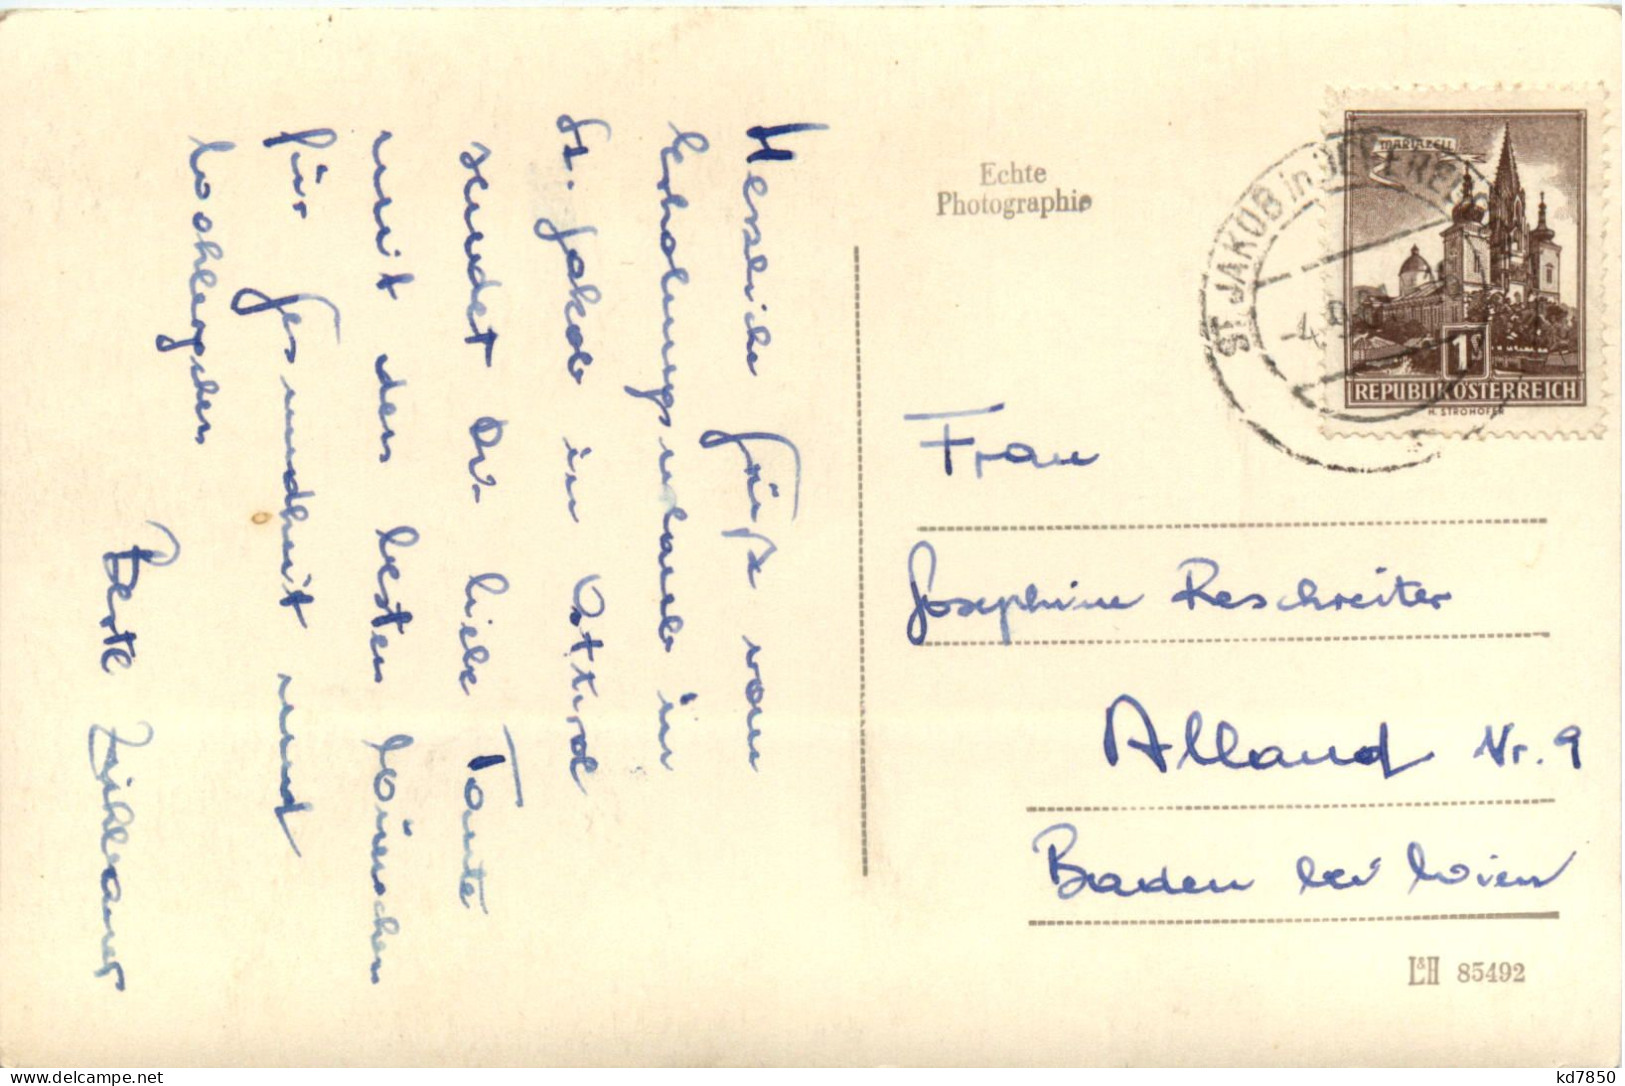 Herzliche Grüße vom
Erholungsurlaub in
St. Jakob in Osttirol
sendet Dir liebe Tante
mit den besten Wünschen
für Gesundheit und
Wohlergehen
Echte
Photographie
MARIAZELL
1S
REPUBLIK ÖSTERREICH
H. STROHOFER
ST. JAKOB in DEFEREGGEN
Frau
Josephine Reschreiter
Alland Nr. 9
Baden bei Wien
L&H 85492
kd7850